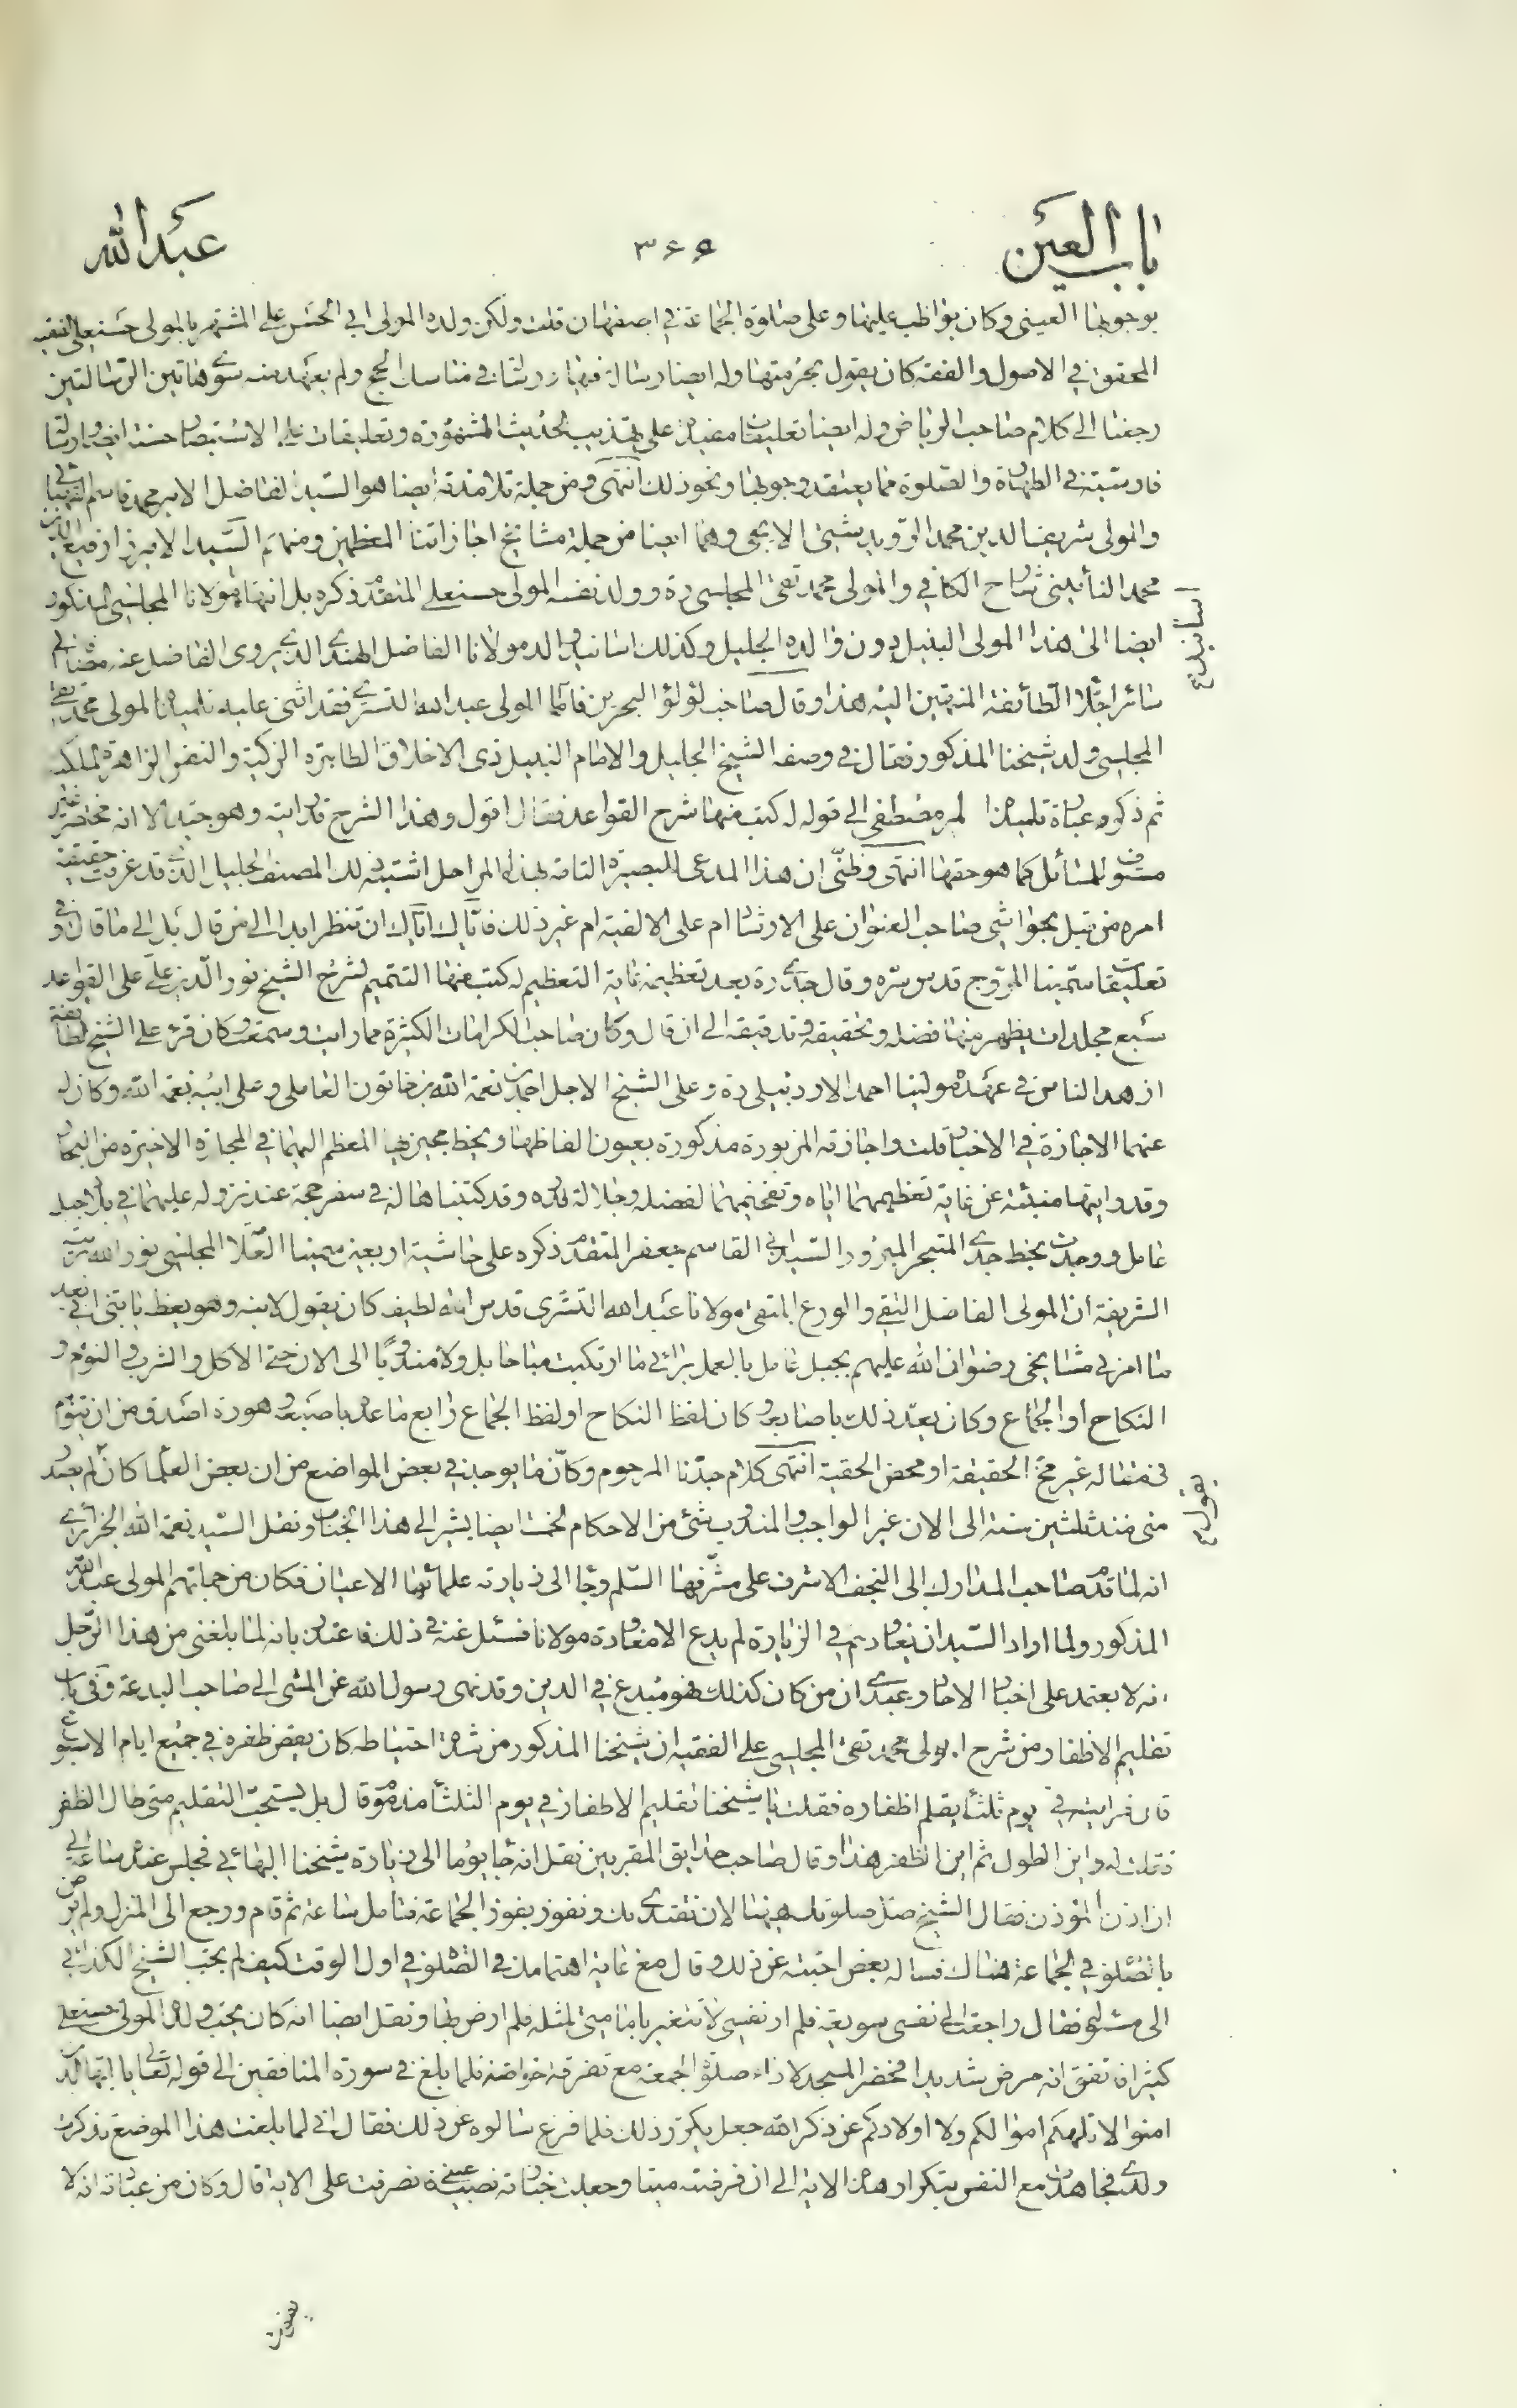 باب العين ٣۶۶ عبد الله
بوجوبها العينى وكان يواظب عليها وعلى صلوة الجماعة فى اصفهان قلت ولكن ولده المولى ابى الحسن على المشتهر بالمولى حسنعلى الفقيه
المحقق فى الاصول والفقه كان يقول بحرمتها وله ايضا رسالة فى مناسك الحج ولم يعهد منه سوى هاتين الرسالتين
رجعنا الى كلام صاحب الرياض وله ايضا تعليقات مفيدة على تهذيب الحديث المشهورة وتعليقات على الاستبصار حسنة ايضا ورسالة
فارسيّة فى الطهارة والصلوة مما يعتقد وجوبها ونحو ذلك انتهى ومن جملة تلامذته ايضا هو السيد الفاضل الامير محمد قاسم القهپائى
والمولى شريف الدين محمد الرويدشتى وهما ايضا من جملة مشايخ اجازاتنا المعظمين ومنهم السّيد الاميرزا رفيع الدين
محمد النائينى شارح الكافى والمولى محمد تقى المجلسى ره وولد نفسه المولى حسنعلى المتقدّم ذكره بل انتهاء مولانا المجلسى المذكور
ايضا الى هذا المولى النبيل دون والده الجليل وكذلك اسانيد والد مولانا الفاضل الهندى الذى يروى الفاضل عنه
سائر اجلّاء الطّائفة المنتهين اليه هذا وقال صاحب لؤلؤ البحرين فامّا المولى عبد الله التسترى فقد اثنى عليه تلميذه المولى محمد تقى
المجلسى والد شيخنا المذكور فقال فى وصفه الشيخ الجليل والامام النبيل ذى الاخلاق الطاهرة الزكية والنفس الزاهرة الملكية
ثم ذكر عبارة تلميذه المير مصطفى الى قوله له كتب منها شرح القواعد فقال اقول وهذا الشرح قد رايته وهو جيد الا انه مختصر غير
مستوف للمسائل كما هو حقها انتهى وظنّى ان هذا المدعى للبصيرة التامة بهذه المراحل اشتبه له المصنف الجليل الذى قد عرفت حقيقة
امره من قبل بحواشى صاحب العنوان على الارشاد ام على الالفية ام غير ذلك فاياك اياك ان تنظر ابدا الى من قال بل الى ما قال وفى
تعليقات سميّنا المروّج قدس سرّه وقال جدى ره بعد تعظيمه غاية التعظيم له كتب منها التتميم لشرح الشيخ نور الدّين علىّ على القواعد
سبع مجلدات يظهر منها فضله وتحقيقه وتدقيقه الى ان قال وكان صاحب الكرامات الكثيرة مما رايت وسمعت وكان قرء على الشيخ الطائفة
ازهد الناس فى عهده مولينا احمد الاردبيلى ره وعلى الشيخ الاجل احمد بن نعمة الله بن خاتون العاملى وعلى ابيه نعمة الله وكان له
عنهما الاجازة فى الاخبار قلت واجازته المزبورة مذكورة بعيون الفاظها وبخط مجيزيها المعظم اليهما فى المجلدة الاخيرة من البحار
وقد رايتها منبئة عن غاية تعظيمهما اياه وتفخيمهما لفضله وجلالة قدره وقد كتبناها له فى سفر حجة عند نزوله عليهما فى بلاد جبل
عامل ووجدت بخط جدى المتبحر المبرور السيد ابى القاسم جعفر المتقدم ذكره على حاشية اربعين سمينا العلّامة المجلسى نور الله تربته
الشريفة ان المولى الفاضل التقى والورع المتقى مولانا عبد الله التسترى قدس الله لطيف كان يقول لابنه وهو يعظه يا بنى انى بعد
ما امرنى مشايخى رضوان الله عليهم بجبل عامل بالعمل برائى ما ارتكبت مباحا بل ولا مندوبا الى الان حتى الاكل والشرب والنوم و
النكاح او الجماع وكان يعدّ ذلك باصابعه وكان لفظ النكاح او لفظ الجماع رابع ما عده باصبعه وهو ره اصدق من ان يتوهم
فى مقاله غير مخ الحقيقة او محض الحقية انتهى كلام جدّنا المرحوم وكانّ ما يوجد فى بعض المواضع من ان بعض العلما كان لم يصدر
منى منذ ثلثين سنة الى الان غير الواجب والمندوب شئ من الاحكام الخمسة ايضا يشير الى هذا الجناب ونقل السّيد نعمة الله الجزائرى
انه لما قدم صاحب المدارك الى النجف الاشرف على مشرّفها السّلم وجاء الى زيارته علمائها الاعيان فكان من جملتهم المولى عبد الله
المذكور ولما اراد السّيد ان يعاودهم فى الزيارة لم يدع الا معاودة مولانا فسئل عنه فى ذلك فاعتذر بانه لما بلغنى من هذا الرّجل
انه لا يعتمد على اخبار الاحاد وعندى ان من كان كذلك فهو مبدع فى الدين وقد نهى رسول الله عن المشى الى صاحب البدعة وفى باب
تقليم الاظفار من شرح المولى محمد تقى المجلسى على الفقيه ان شيخنا المذكور من شدة احتياطه كان يقص ظفره فى جميع ايام الاسبوع
قال فرايته فى يوم ثلثا يقلم اظفاره فقلت يا شيخنا تقليم الاظفار فى يوم الثلثا مذموم قال بل يستحبّ التقليم متى طال الظفر
فقلت له واين الطول ثم اين الظفر هذا وقال صاحب حدايق المقربين نقل انه جاء يوما الى زيارة شيخنا البهائى فجلس عنده ساعة الى
ان اذن المؤذن فقال الشيخ صل صلوتك هيهنا لان نقتدى بك ونفوز بفوز الجماعة فتامل ساعة ثم قام ورجع الى المنزل ولم يرض
بالصلوة فى الجماعة هناك فساله بعض احبته عن ذلك وقال مع غاية اهتمامك فى الصلوة فى اول الوقت كيف لم تجب الشيخ الكذائى
الى مسئوله فقال راجعت الى نفسى سويعة فلم ار نفسى لا تتغير بامامتى لمثله فلم ارض بها ونقل ايضا انه كان يحب ولده المولى حسنعلى
كثيرا فاتفق انه مرض شديدا فحضر المسجد لاداء صلوة الجمعة مع تفرقة حواسه فلما بلغ فى سورة المنافقين الى قوله تعالى يا ايها الذين
امنوا لا تلهكم اموالكم ولا اولادكم عن ذكر الله جعل يكرر ذلك فلما فرغ سالوه عن ذلك فقال انى لما بلغت هذا الموضع تذكرت
ولدى فجاهدت مع النفس بتكرار هذه الاية الى ان فرضته ميتا وجعلت جنازته نصب عينى فصرفت على الاية قال وكان من عبادته انه لا